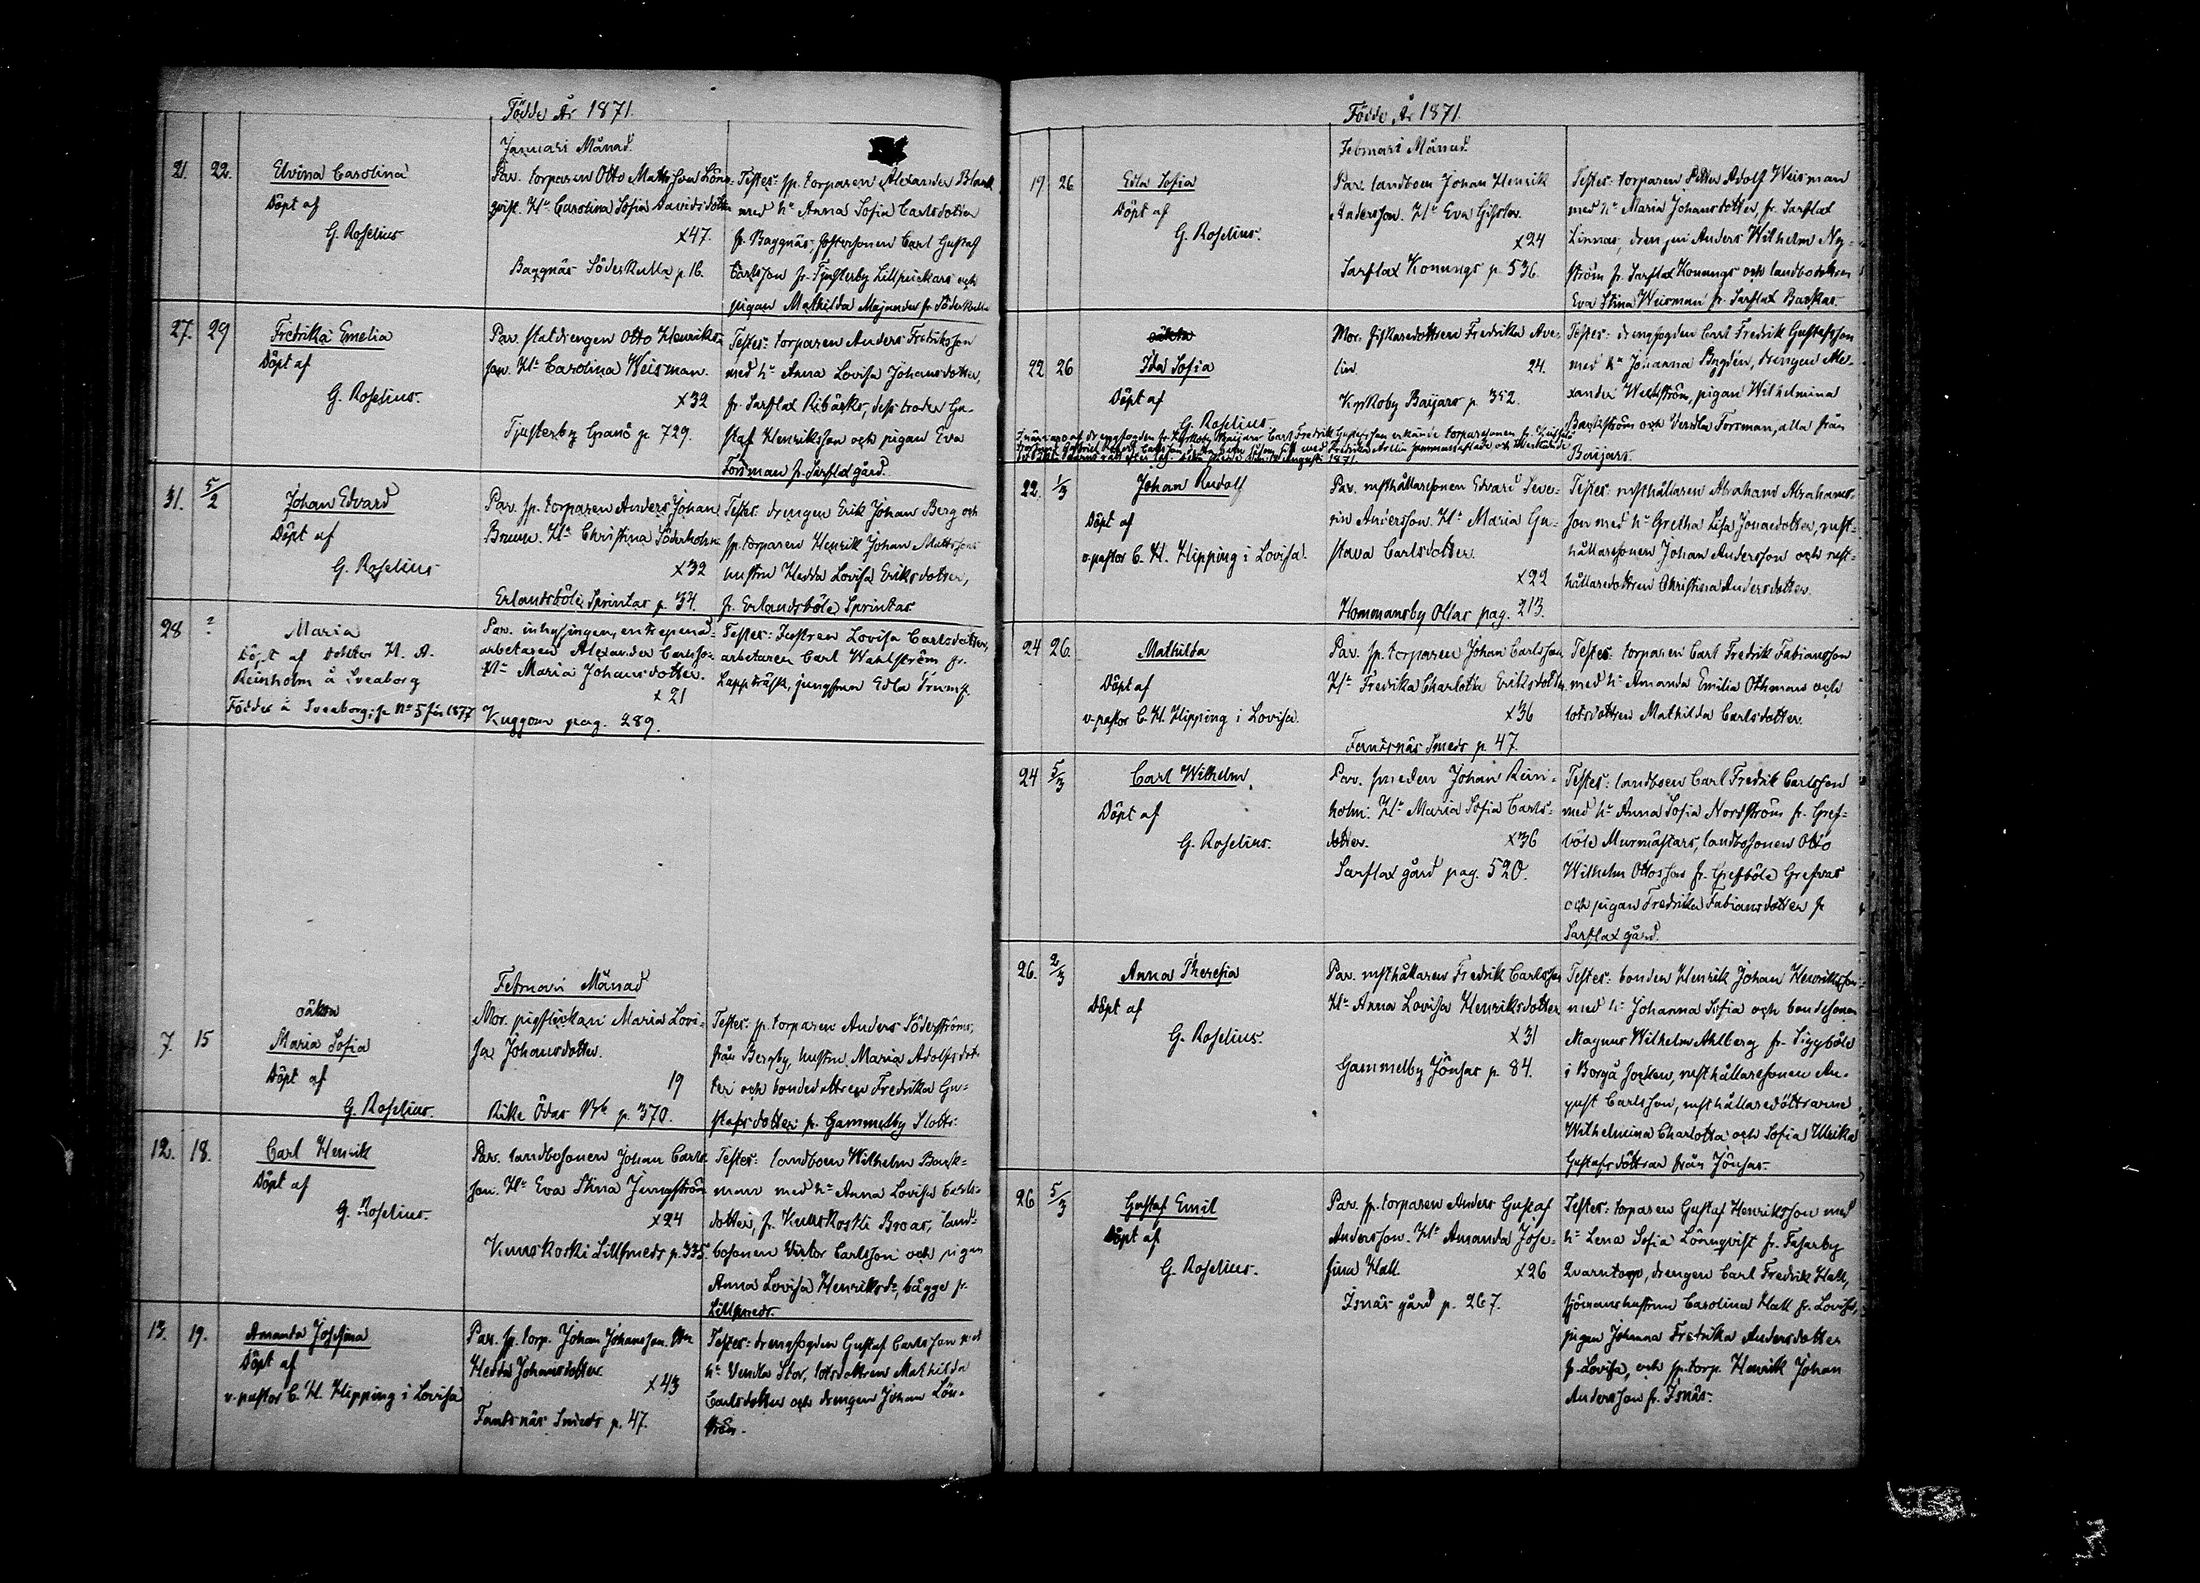 Födde År 1871.
Januari Månad.
21. 22. Elvina Carolina
Döpt af
G. Roselius
Par. torparen Otto Mattsson Lönn-
qvist. Hu Carolina Sofia Davidsdotter
x47.
Baggnäs Söderkulla p. 16.
Testes: sp. torparen Alexander Blank
med hu Anna Sofia Carlsdotter
fr. Baggnäs, fostersonen Carl Gustaf
Carlsson fr. Tjusterby Lillpickars och
pigan Mathilda Majander fr. Söderkulla
27. 29 Fredrika Emelia
Döpt af
G. Roselius.
Par. statdrengen Otto Henriks-
son. Hu Carolina Weisman.
x32
Tjusterby Granö p. 729.
Testes: torparen Anders Fredriksson
med hu Anna Lovisa Johansdotter,
fr. Sarflax Ribäcks, dess broder Gu-
staf Henriksson och pigan Eva
Forsman fr. Sarflax gård.
31. 5/2 Johan Edvard
Döpt af
G. Roselius
Par. sp. torparen Anders Johan
Brunn. Hu Christina Söderholm
x32
Erlandsböle Sprintas p. 34.
Testes: drengen Erik Johan Berg och
sp. torparen Henrik Johan Mattssons
hustru Hedda Lovisa Eriksdotter,
fr. Erlandsböle Sprintas
28 ? Maria
Döpt af doktor H. A.
Reinholm å Sveaborg
Föddes å Sveaborg; se No 5 för 1877
Par. inhysingen, entrepenad-
arbetaren Alexander Carlsson
Hu Maria Johansdotter.
x21
Kuggom pag. 289.
Testes: Lovisa Carlsdotter,
arbetaren Carl Wahlström fr.
Lappträsk, jungfrun Edla Trump
Februari Månad
7. 15 oäkta
Maria Sofia
Döpt af
G. Roselius.
Mor. pigflickan Maria Lovi-
sa Johansdotter.
19
Rike Ödas p. 370.
Testes: sp. torparen Anders Söderströms,
från Bergby, hustru Maria Adolfsdot-
ter och bondedottren Fredrika Gu-
stafsdotter fr. Gammelby Slotts.
12. 18. Carl Henrik
Döpt af
G. Roselius.
Par. landbosonen Johan Carls-
son. Hu Eva Stina Jungström
x24
Kuuskoski Lillsmeds p. 335.
Testes: landboen Wilhelm Bask-
man med hu Anna Lovisa Carls-
dotter, fr. Kuuskoski Broas, land-
bosonen Victor Carlsson och pigan
Anna Lovisa Henriksdr, bägge fr.
Lillsmeds.
13. 19. Amanda Josefina
Döpt af
v. pastor C. H. Hipping i Lovisa
Par. sp. torp. Johan Johansson. Hu
Hedda Johansdotter.
x43
Fantsnäs Smeds p. 47.
Testes: drengfogden Gustaf Carlsson med
hu Vendla Stor, lotsdottren Mathilda
Carlsdotter och drengen Johan Lön-
Födde År 1871.
Februari Månad.
19 26 Edla Sofia
Döpt af
G. Roselius.
Par. landboen Johan Henrik
Andersson. Hu Eva
x24
Sarflax Konungs p. 536.
Testes: torparen Petter Adolf Weisman
med hu Maria Johansdotter, fr. Sarflax
Linnas, drengen Anders Wilhelm Ny-
ström fr. Sarflax Konungs och landbodottren
Eva Stina Weisman fr. Sarflax Baskas.
22 26 oäkta
Ida Sofia
Döpt af
G. Roselius
Mor. fiskaredottren Fredrika Ave-
lin
24.
Kyrkoby Baijars p. 352.
Testes: drengfogden Carl Fredrik Gustafsson
med hu Johanna Bygden, drengen Ale-
xander Wickström, pigan Wilhelmina
Backström och Vendla Forsman, alla från
Baijars.
drengfogden fr. Kyrkoby Baijars Carl Fredrik Gustafsson erkände torparesonen
August 1871.
22. 1/3 Johan Rudolf
Döpt af
v. pastor C. H. Hipping i Lovisa.
Par. rusthållaresonen Edvard Seve-
rin Andersson. Hu Maria Gu-
stava Carlsdotter.
x22
Hommansby Ollas pag. 213.
Testes: rusthållaren Abraham Abrahams-
son med hu Gretha Lisa Jonaedotter, rust-
hållaresonen Johan Andersson och rust-
hållaredottren Christina Andersdotter.
24 26. Mathilda
Döpt af
v. pastor C. H. Hipping i Lovisa.
Par. sp. torparen Johan Carlsson
Hu Fredrika Charlotta Eriksdotter
x36
Fantsnäs Smeds p. 47
Testes: torparen Carl Fredrik Fabiansson
med hu Amanda Emilia Othman och
lotsdottren Mathilda Carlsdotter.
24 5/3 Carl Wilhelm.
Döpt af
G. Roselius.
Par. smeden Johan Rein-
holm. Hu Maria Sofia Carls-
dotter. x36
Sarflax gård pag. 520.
Testes: landboen Carl Fredrik Carlsson
med hu Anna Sofia Nordström fr. Gref-
böle Murmästars, landbosonen Otto
Wilhelm Ottosson fr. Grefböle Grefvas
och pigan Fredrika Fabiansdotter fr
Sarflax gård.
26. 2/3 Anna Theresia
Döpt af
G. Roselius.
Par. rusthållaren Fredrik Carlsson
Hu Anna Lovisa Henriksdotter
x31
Gammelby Jönsas p. 84.
Testes: bonden Henrik Johan Henriksson
med hu Johanna Sofia och bondesonen
Magnus Wilhelm Ahlberg fr. Siggböle
i Borgå Socken, rusthållaresonen Au-
gust Carlsson, rusthållaredöttrarne
Wilhelmina Charlotta och Sofia Ulrika
Gustafsdöttrar från Jönsas.
26 5/3 Gustaf Emil
Döpt af
G. Roselius.
Par. sp. torparen Anders Gustaf
Andersson. Hu Amanda Jose-
fina Hall x26
Isnäs gård p. 267.
Testes: torparen Gustaf Henriksson med
hu Lena Sofia Lönnqvist fr. Fasarby
Qvarntorp, drengen Carl Fredrik Hall,
sjömanshustrun Carolina Hall fr. Lovisa,
pigan Johanna Fredrika Andersdotter
fr. Lovisa, och sp. torp. Henrik Johan
Andersson fr. Isnäs.